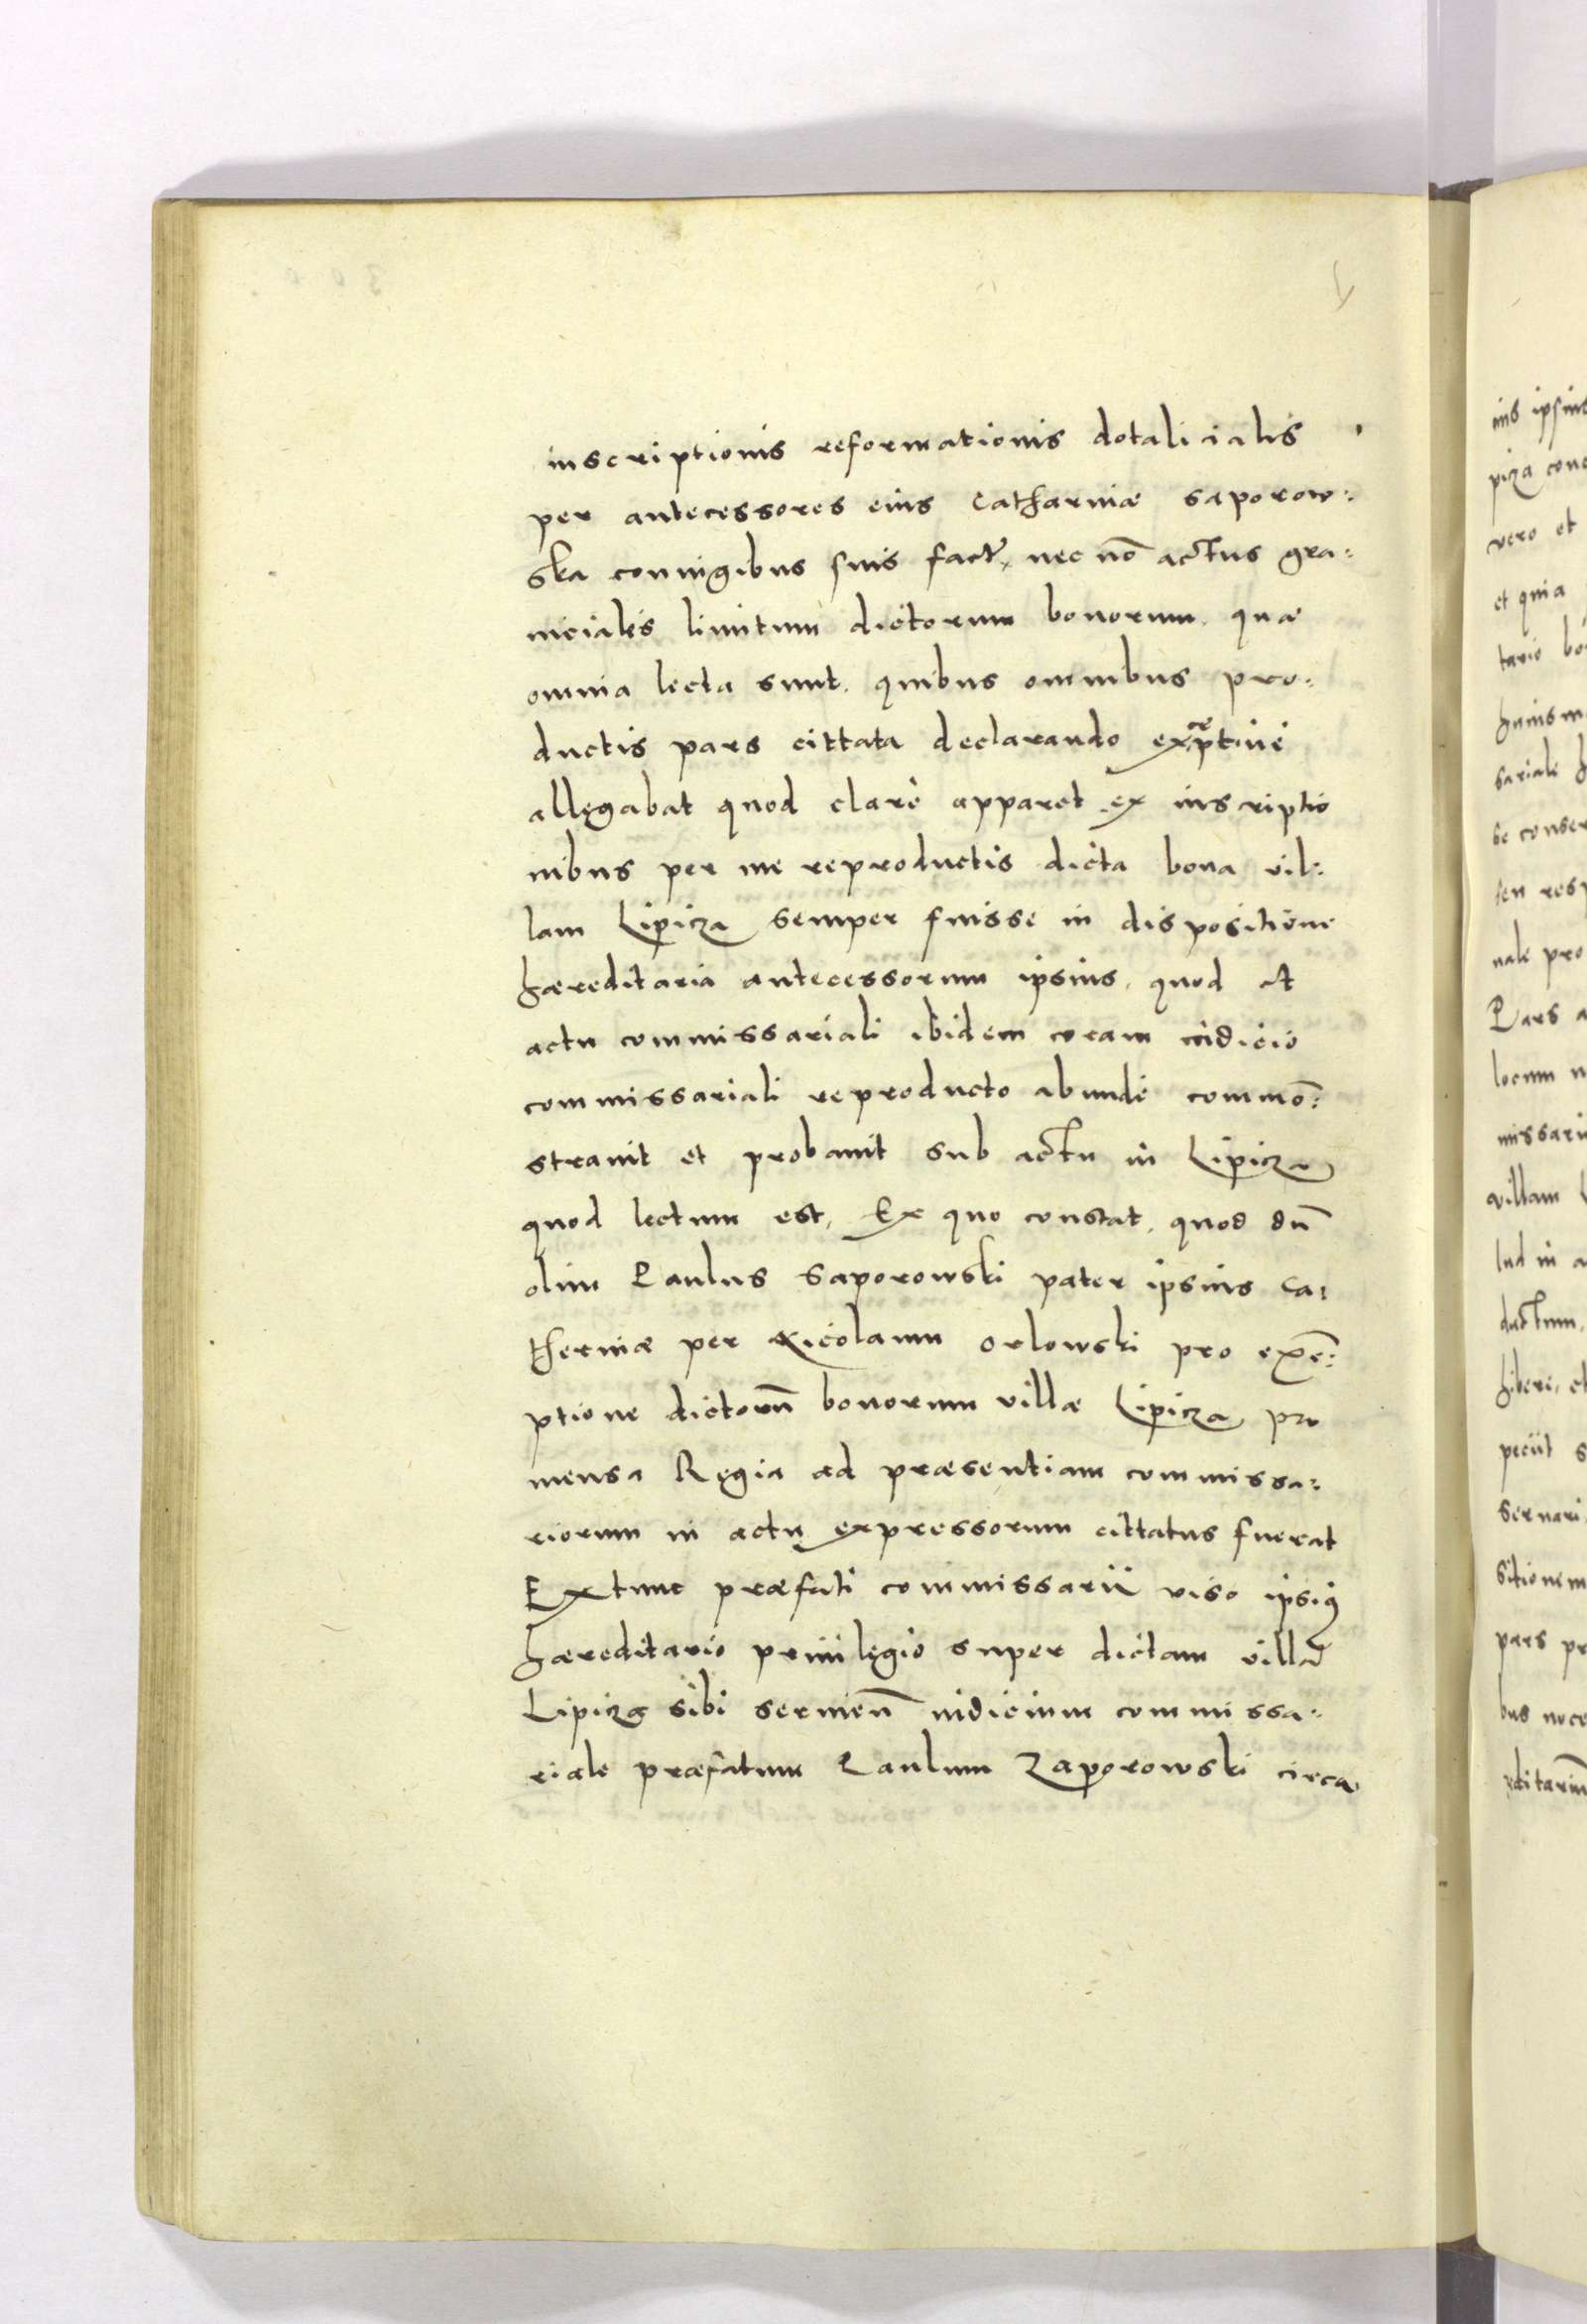 inscriptionis reformationis dotalicialis
per antecessores eius Catharinæ Saporow:
ska coniugibus suis fact, nec nō actus gra:
niciales limitum dictorum bonorum. quæ
omnia lecta sunt. quibus omnibus pro:
ductis pars cittata declarando
allegabat quod clarè apparet ex inscriptio
nibus per me reproductis dicta bona vil:
lam Lipicza semper fuisse in dispositione
hæreditaria antecessorum ipsius. quod et
actu commissariali ibidem coram iudicio
commissariali reproducto abundè commō:
strauit et probauit sub actu in Lipicza
quod lectum est, Ex quo constat. quod dū
olim Paulus Saporowski pater ipsius Ca:
therinæ per Nicolaum Orlowski pro exē:
ptione dictorū bonorum villæ Lipicza pro
mensa Regia ad præsentiam commissa:
riorum in actu expressorum cittatus fuerat
Extunc præfati commissarii viso ipsiꝰ
hæreditario priuilegio super dictam villā
Lipicza sibi seruieñ iudicium commissa:
riale præfatum Paulum Zaporowski circa
ius ipsius
piza
vero et
et quia
tario
huiusm
sariale
se conser
seu resp
nale pro
Pars a
locum n
missari
villam L
lud in a
ductum,
hibere, et
peciit s
seruari
sitionem
pars pr
bus noce